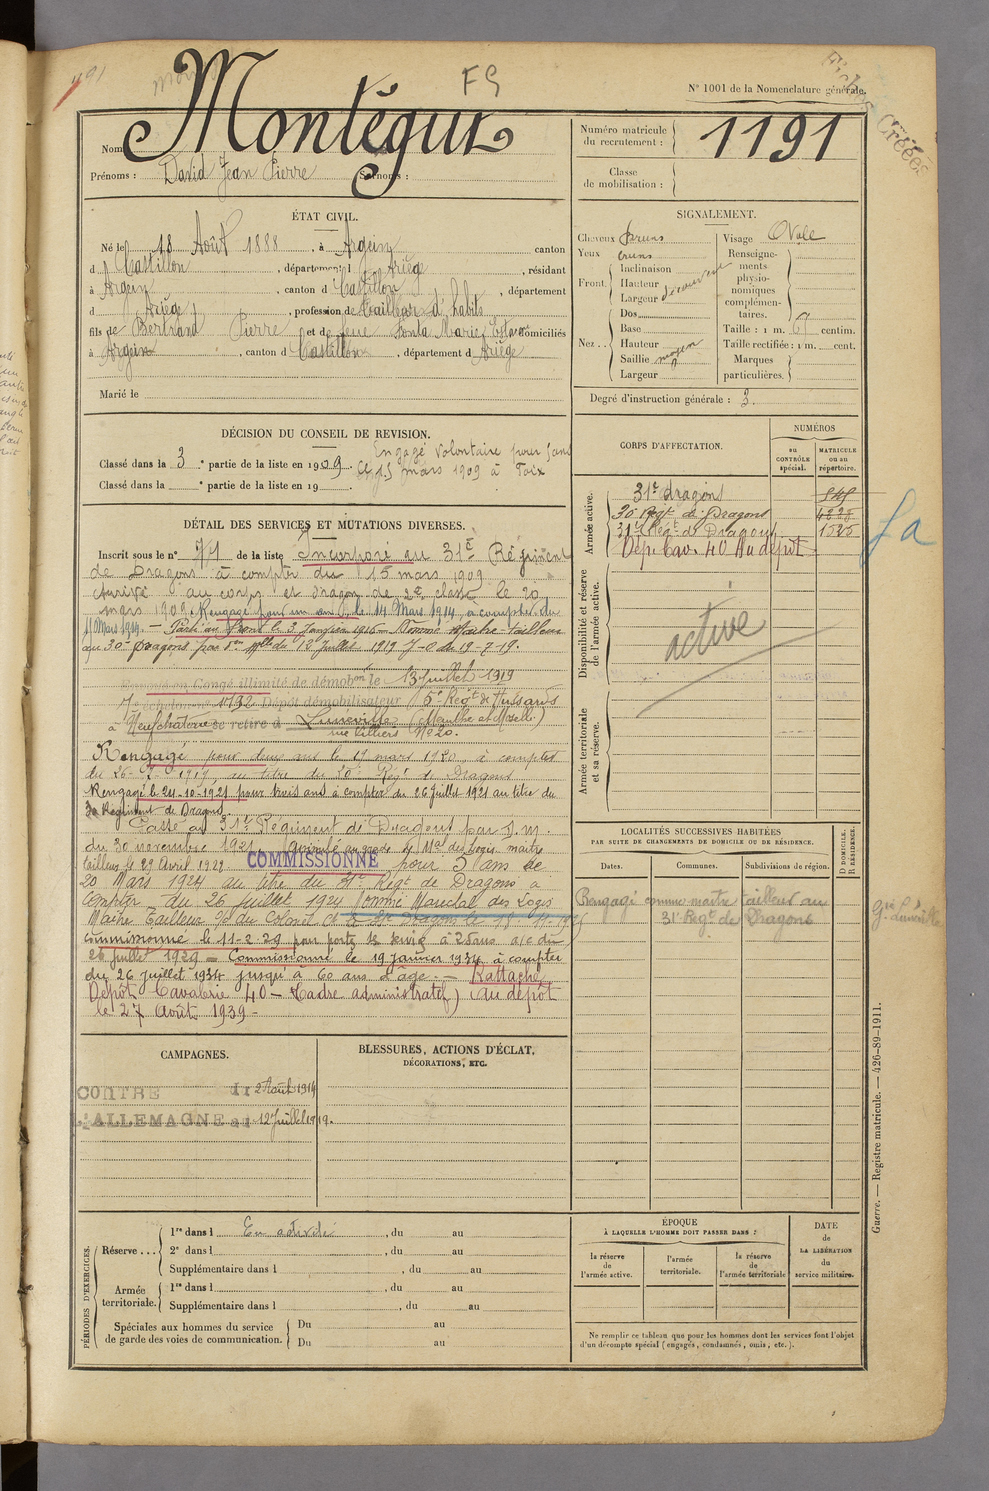 1191
FG
N° 1001 de la Nomenclature générale.
Fiches Créées
Nom : Montégut
Prénoms : David Jean Pierre Surnoms :
Numéro matricule du recrutement : 1191
Classe de mobilisation :
ÉTAT CIVIL.
Né le 18 Août 1888, à Argein canton
d Castillon, département Ariège, résidant
à Argein, canton d Castillon, département
d Ariège, profession de tailleur d'habits
fils de Bertrand Pierre et de feue Sonla Marie domiciliés
à Argein, canton d Castillon, département d Ariège
Marié le
SIGNALEMENT.
Cheveux bruns
Yeux
Front. Inclinaison
Hauteur
Largeur découvert
Nez .. Dos
Base
Hauteur
Saillie moyen
Largeur
Visage Ovale
Renseignements physionomiques complémentaires.
Taille : 1 m. 67 centim.
Taille rectifiée : 1 m. cent.
Marques particulières.
Degré d'instruction générale : 3.
DÉCISION DU CONSEIL DE REVISION.
Classé dans la 3e partie de la liste en 1909. Engagé Volontaire pour 5 ans
le 15 mars 1909 à Foix
Classé dans la e partie de la liste en 19
CORPS D'AFFECTATION.
NUMÉROS
au CONTRÔLE spécial.
MATRICULE ou au répertoire.
Armée active.
31e dragon
30 Regt de Dragons
31e Regt de Dragons 1525
Dépt Cav. 40 Au dépôt
Disponibilité et réserve de l'armée active.
active
Armée territoriale et sa réserve.
DÉTAIL DES SERVICES ET MUTATIONS DIVERSES.
Inscrit sous le n° 74 de la liste Incorporé au 31e Régiment
de Dragons à compter du 15 mars 1909.
Arrivé au corps et dragon de 2e classe le 20
mars 1909. Rengagé pour un an le 14 Mars 1914, à compter du
Mars 1914. — Parti au front le 3 Janvier 1916 — Nommé Maitre-tailleur
au 30e Dragons par Mlle du 12 Juillet 1919
en Congé illimité de démobon le 13 Juillet 1919
7e échelon n° 1792 Dépôt démobilisateur 5e Regt de Hussards
à Neufchateau se retire à Lunéville (Meurthe et Moselle)
rue Villiers N° 20.
Rengagé pour deux ans le 19 mars 1920 à compter
du 26-7-1919, au titre du 30e Regt de Dragons
Rengagé le 24-10-1921 pour trois ans à compter du 26 Juillet 1921 au titre du
30 Régiment de Dragons
Passé au 31e Régiment de Dragons par D.M.
du 30 novembre 1921. au grade de Mal des Logis maitre
tailleur le 29 Avril 1922 COMMISSIONNÉ pour 5 ans le
20 Mars 1924 au titre du 31e Regt de Dragons à
compter du 26 Juillet 1924 Nommé Marechal des Logis
Maitre Tailleur du Colonel Ct le Dragons le 18-11-1926
Commissionné le 11-2-29 pour porter ses services à 25 ans a/c du
26 juillet 1929 — Commissionné le 19 janvier 1934 à compter
du 26 juillet 1934 jusqu'à 60 ans d'âge. — Rattaché
Dépôt Cavalerie 40 — (Cadre administratif) Au dépôt
le 27 Août 1939 —
LOCALITÉS SUCCESSIVES HABITÉES
PAR SUITE DE CHANGEMENTS DE DOMICILE OU DE RÉSIDENCE.
Dates.
Communes.
Subdivisions de région.
D DOMICILE.
R RÉSIDENCE.
Rengagé comme maitre tailleur au
31e Regt de Dragons
CAMPAGNES.
CONTRE du 2 Août 1914
L'ALLEMAGNE au 12 Juillet 1919.
BLESSURES, ACTIONS D'ÉCLAT,
DÉCORATIONS, ETC.
PÉRIODES D'EXERCICES.
Réserve ... 1re dans l En activité, du au
2e dans l, du au
Supplémentaire dans l, du au
Armée territoriale. 1re dans l, du au
Supplémentaire dans l, du au
Spéciales aux hommes du service de garde des voies de communication. Du au
Du au
ÉPOQUE
À LAQUELLE L'HOMME DOIT PASSER DANS :
la réserve de l'armée active.
l'armée territoriale.
la réserve de l'armée territoriale
DATE de LA LIBÉRATION du service militaire.
Ne remplir ce tableau que pour les hommes dont les services font l'objet
d'un décompte spécial (engagés, condamnés, omis, etc.).
Guerre. — Registre matricule. — 426-89-1911.